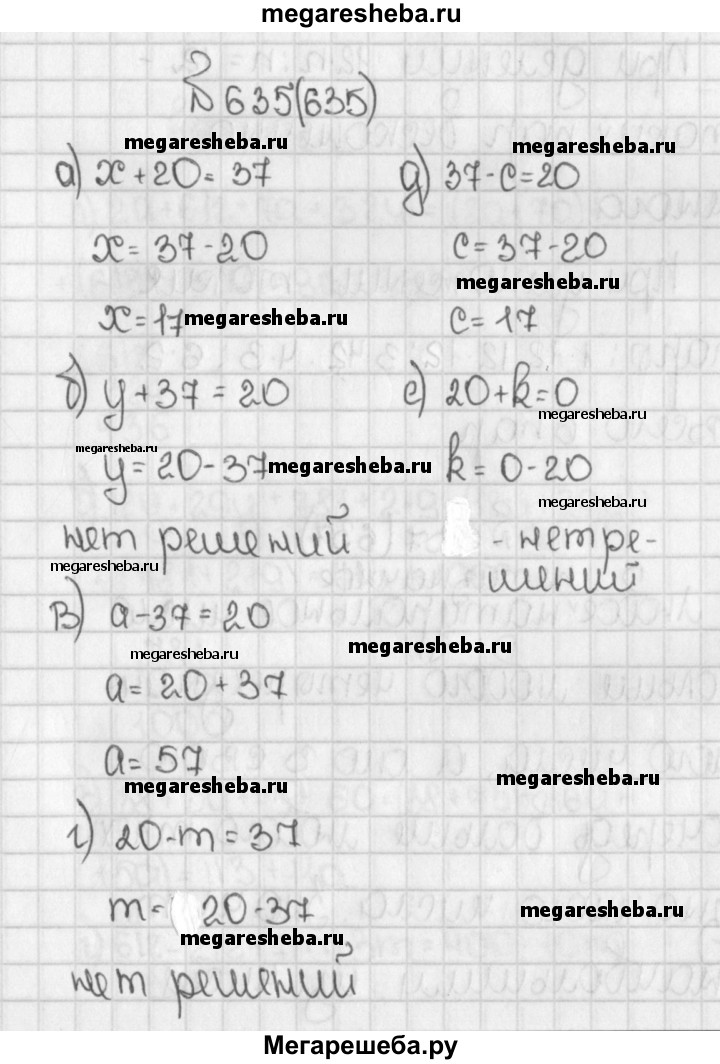 megaresheba.ru
№ 635(635)
megaresheba.ru
megaresheba.ru
а) x + 20 = 37
x = 37 - 20
x = 17
megaresheba.ru
б) y + 37 = 20
megaresheba.ru
y = 20 - 37
megaresheba.ru
нет решений
megaresheba.ru
в) a - 37 = 20
megaresheba.ru
a = 20 + 37
a = 57
megaresheba.ru
г) 20 - m = 37
m = 20 - 37
megaresheba.ru
нет решений
д) 37 - c = 20
c = 37 - 20
megaresheba.ru
c = 17
е) 20 + k = 0
megaresheba.ru
k = 0 - 20
megaresheba.ru
- нет ре-
шений
megaresheba.ru
megaresheba.ru
megaresheba.ru
Мегарешеба.ру